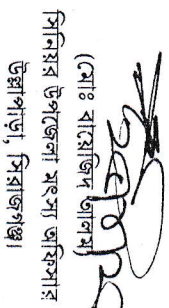 (মোঃ বায়েজিদ আলম)
সিনিয়র উপজেলা মৎস্য অফিসার
উল্লাপাড়া, সিরাজগঞ্জ।